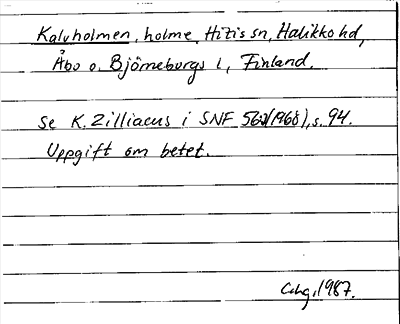 Kalvholmen, holme, Hitis sn, Halikko hd,
Åbo o. Björneborgs l, Finland.
Se K. Zilliacus i SNF (1968), s. 94.
Uppgift om betet.
1987.